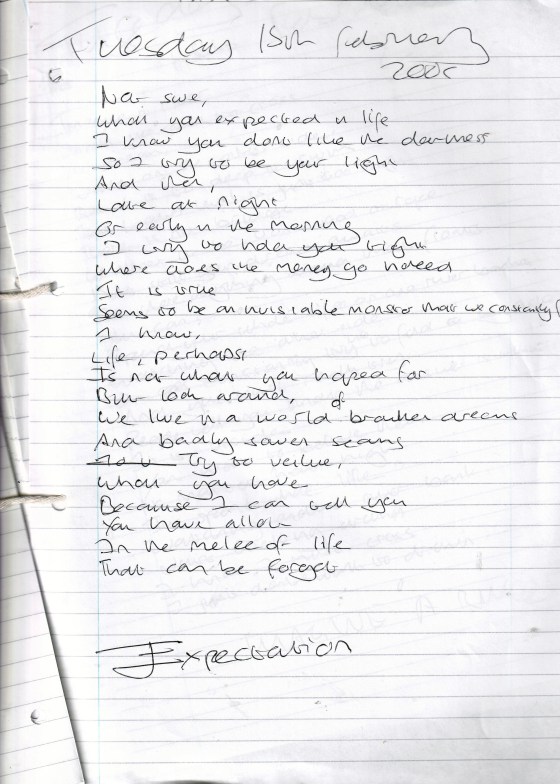 Tuesday 15th February
2005
Not sure,
what you expected in life
I know you dont like the darkness
So I try to be your light
And then,
Late at night
Or early in the morning
I try to hold you tight
Where does the money go indeed
It is true
Seems to be an invisiable monster that we constantly
I know,
Life, perhaps
Is not what you hoped for
But look around,
We live in a world of broken dreams
And badly sewn seams
Try to value,
What you have
Because I can tell you
You have allot
In the melee of life
That can be forgot
Expectation